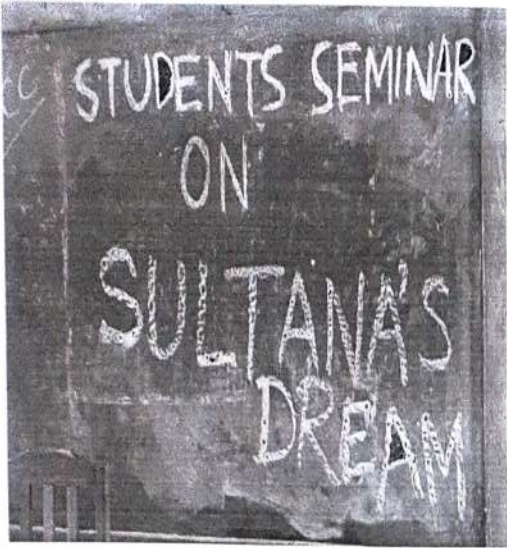 STUDENTS SEMINAR
ON
SULTANA'S
DREAM